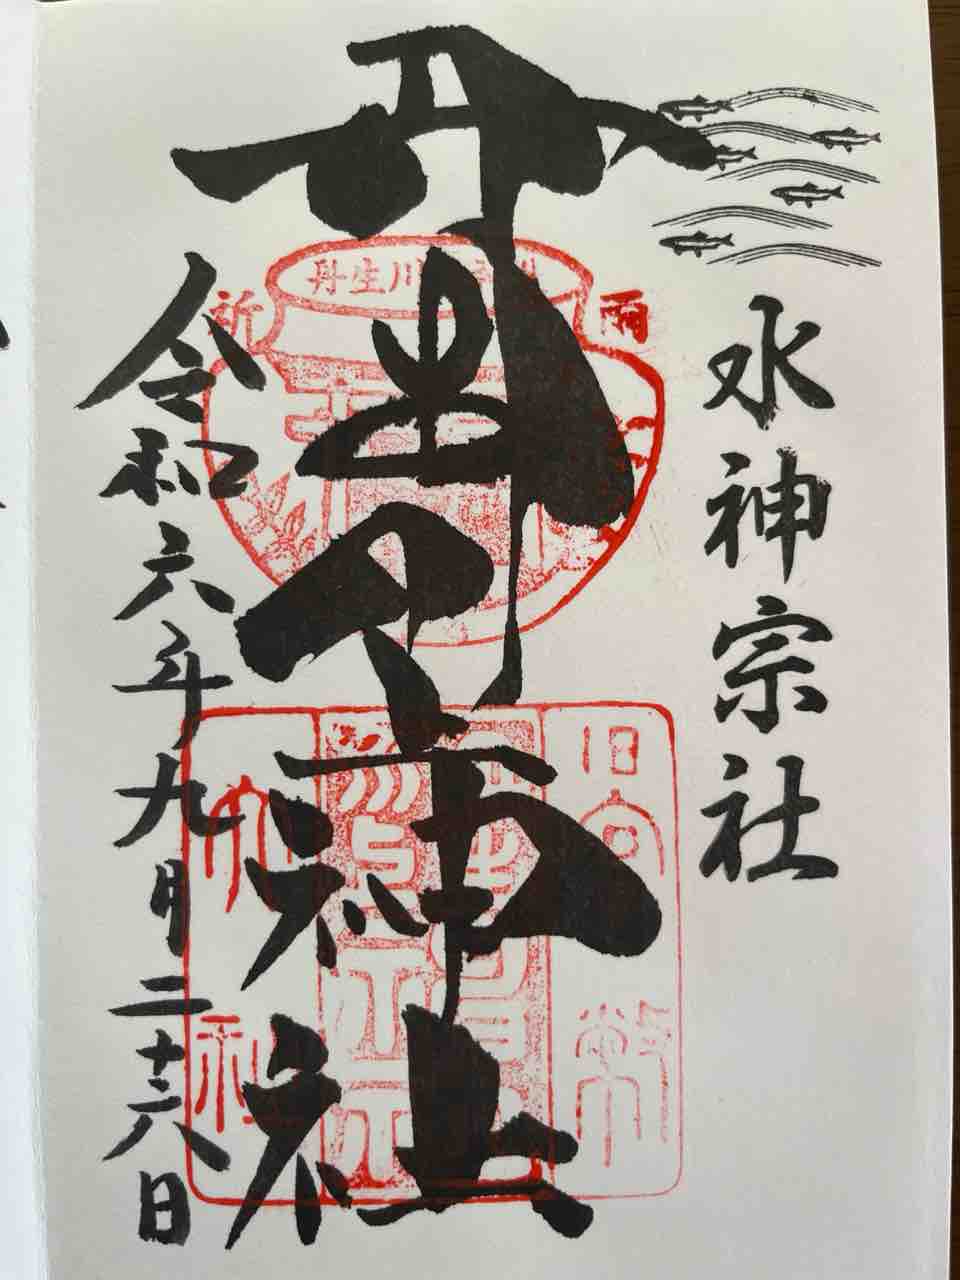 水神宗社
丹生川上神社
令和六年九月二十六日
祈雨
丹生川
旧官幣
大社